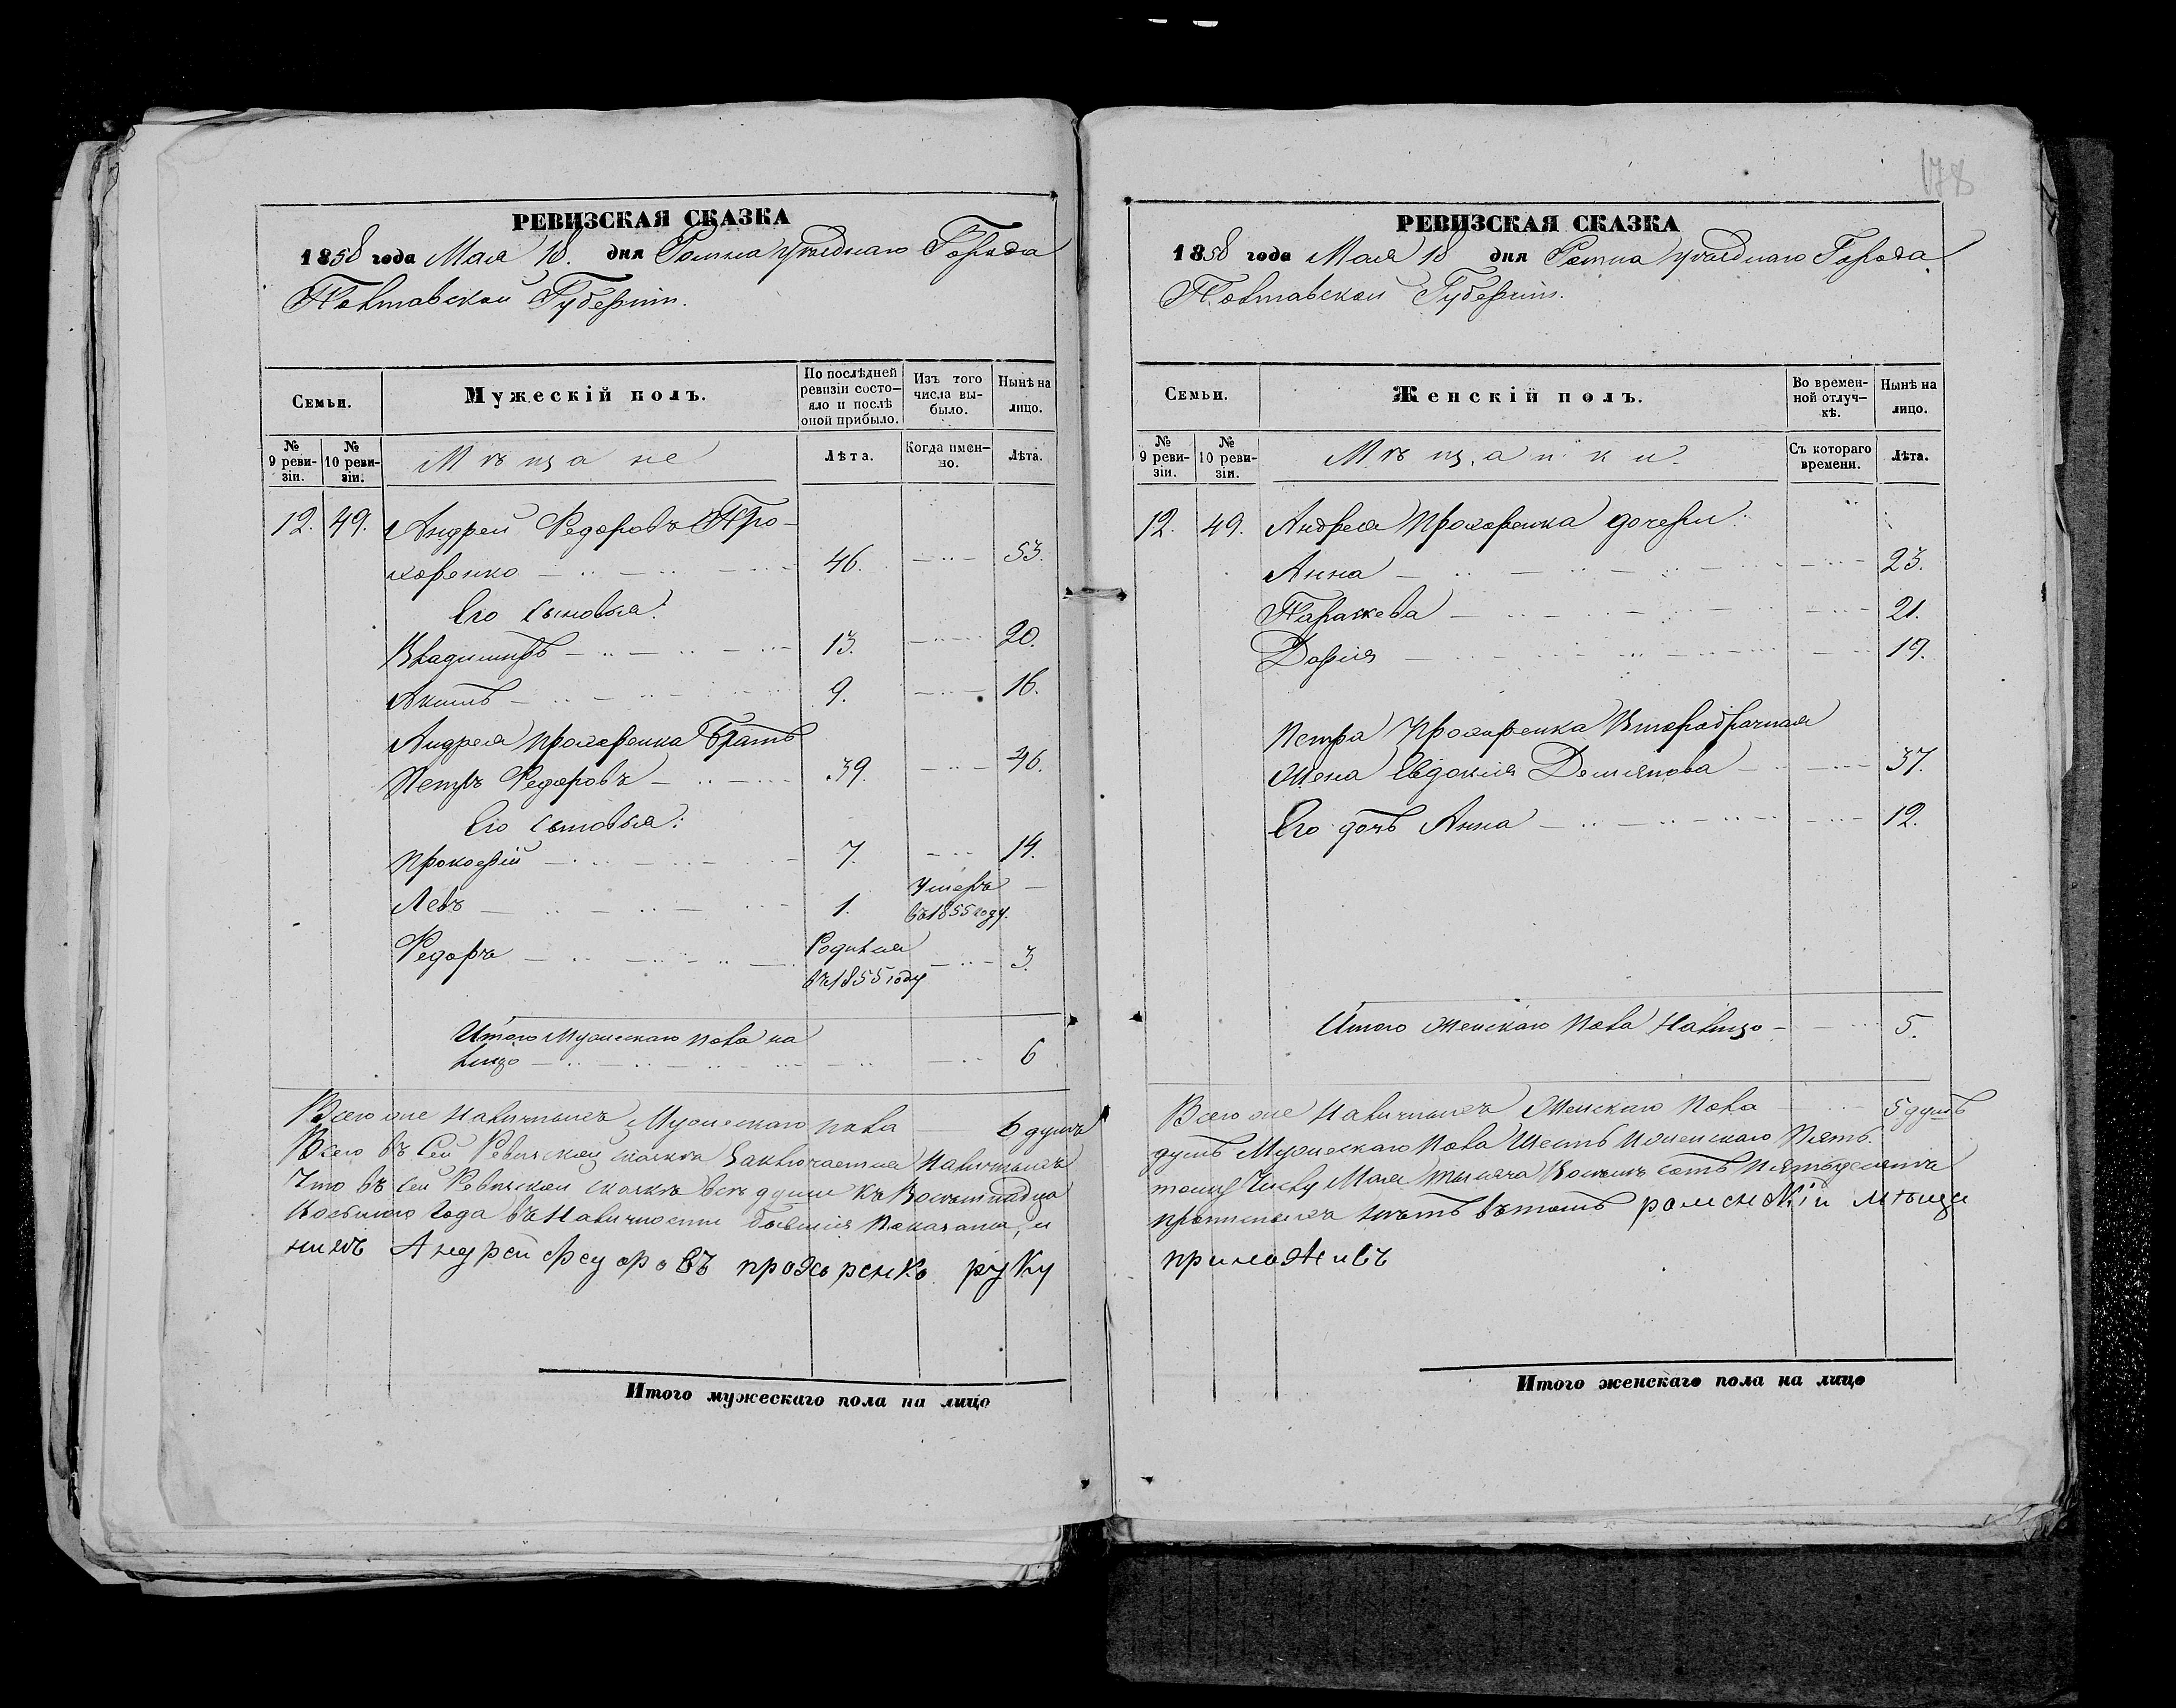 178
РЕВИЗСКАЯ СКАЗКА
1858 года Мая 18. дня Ромна уѣзднаго Города
Полтавской Губерніи.
Семьи.
Мужескій полъ.
По послѣдней ревизіи состо-
яло и послѣ оной прибыло.
Изъ того числа вы-
было.
Нынѣ на лицо.
№ 9 реви-
зіи.
№ 10 реви-
зіи.
Мѣщане
Лѣта.
Когда имен-
но.
Лѣта.
12. 49. Андрей Федоровъ Про-
хоренко 46. 53.
Его сыновья:
Владимиръ 13. 20.
Акимъ 9. 16.
Андрея Прохоренка Братъ
Петръ Федоровъ 39. 46.
Его сыновья:
Прокофій 7. 14.
Левъ 1. Умеръ въ 1855 году.
Федоръ Родился въ 1855 году 3.
Итого Мужескаго пола на
лицо 6
Всего же наличныхъ Мужескаго пола 6 душъ
Всего въ сей Ревизской сказкѣ Заключается наличныхъ
Что въ сей Ревизской сказкѣ всѣ души къ Восемнадца
Восьмаго Года въ Наличности бывшія Показаны, и
нихъ Андрей Федоровъ прохоренко руку
Итого мужескаго пола на лицо
РЕВИЗСКАЯ СКАЗКА
1858 года Мая 18 дня Ромна уѣзднаго Города
Полтавской Губерніи.
Семьи.
Женскій полъ.
Во времен-
ной отлуч-
кѣ.
Нынѣ на лицо.
№ 9 реви-
зіи.
№ 10 реви-
зіи.
Мѣщанки.
Съ котораго времени.
Лѣта.
12. 49. Андрея Прохоренка дочери:
Анна 23.
Параскева 21.
Дарія 19.
Петра Прохоренка Второбрачная
жена Евдокія Демьянова 37.
Его дочь Анна 12.
Итого женскаго пола Налицо 5.
Всего же Наличныхъ Женскаго пола 5 душъ
душъ Мужескаго пола Шесть и женскаго Пять.
тому Числу Мая тысяча Восемъ сотъ Пятьдесятъ
прописныхъ нѣтъ въ томъ роменскій мѣщан
приложивъ
Итого женскаго пола на лицо